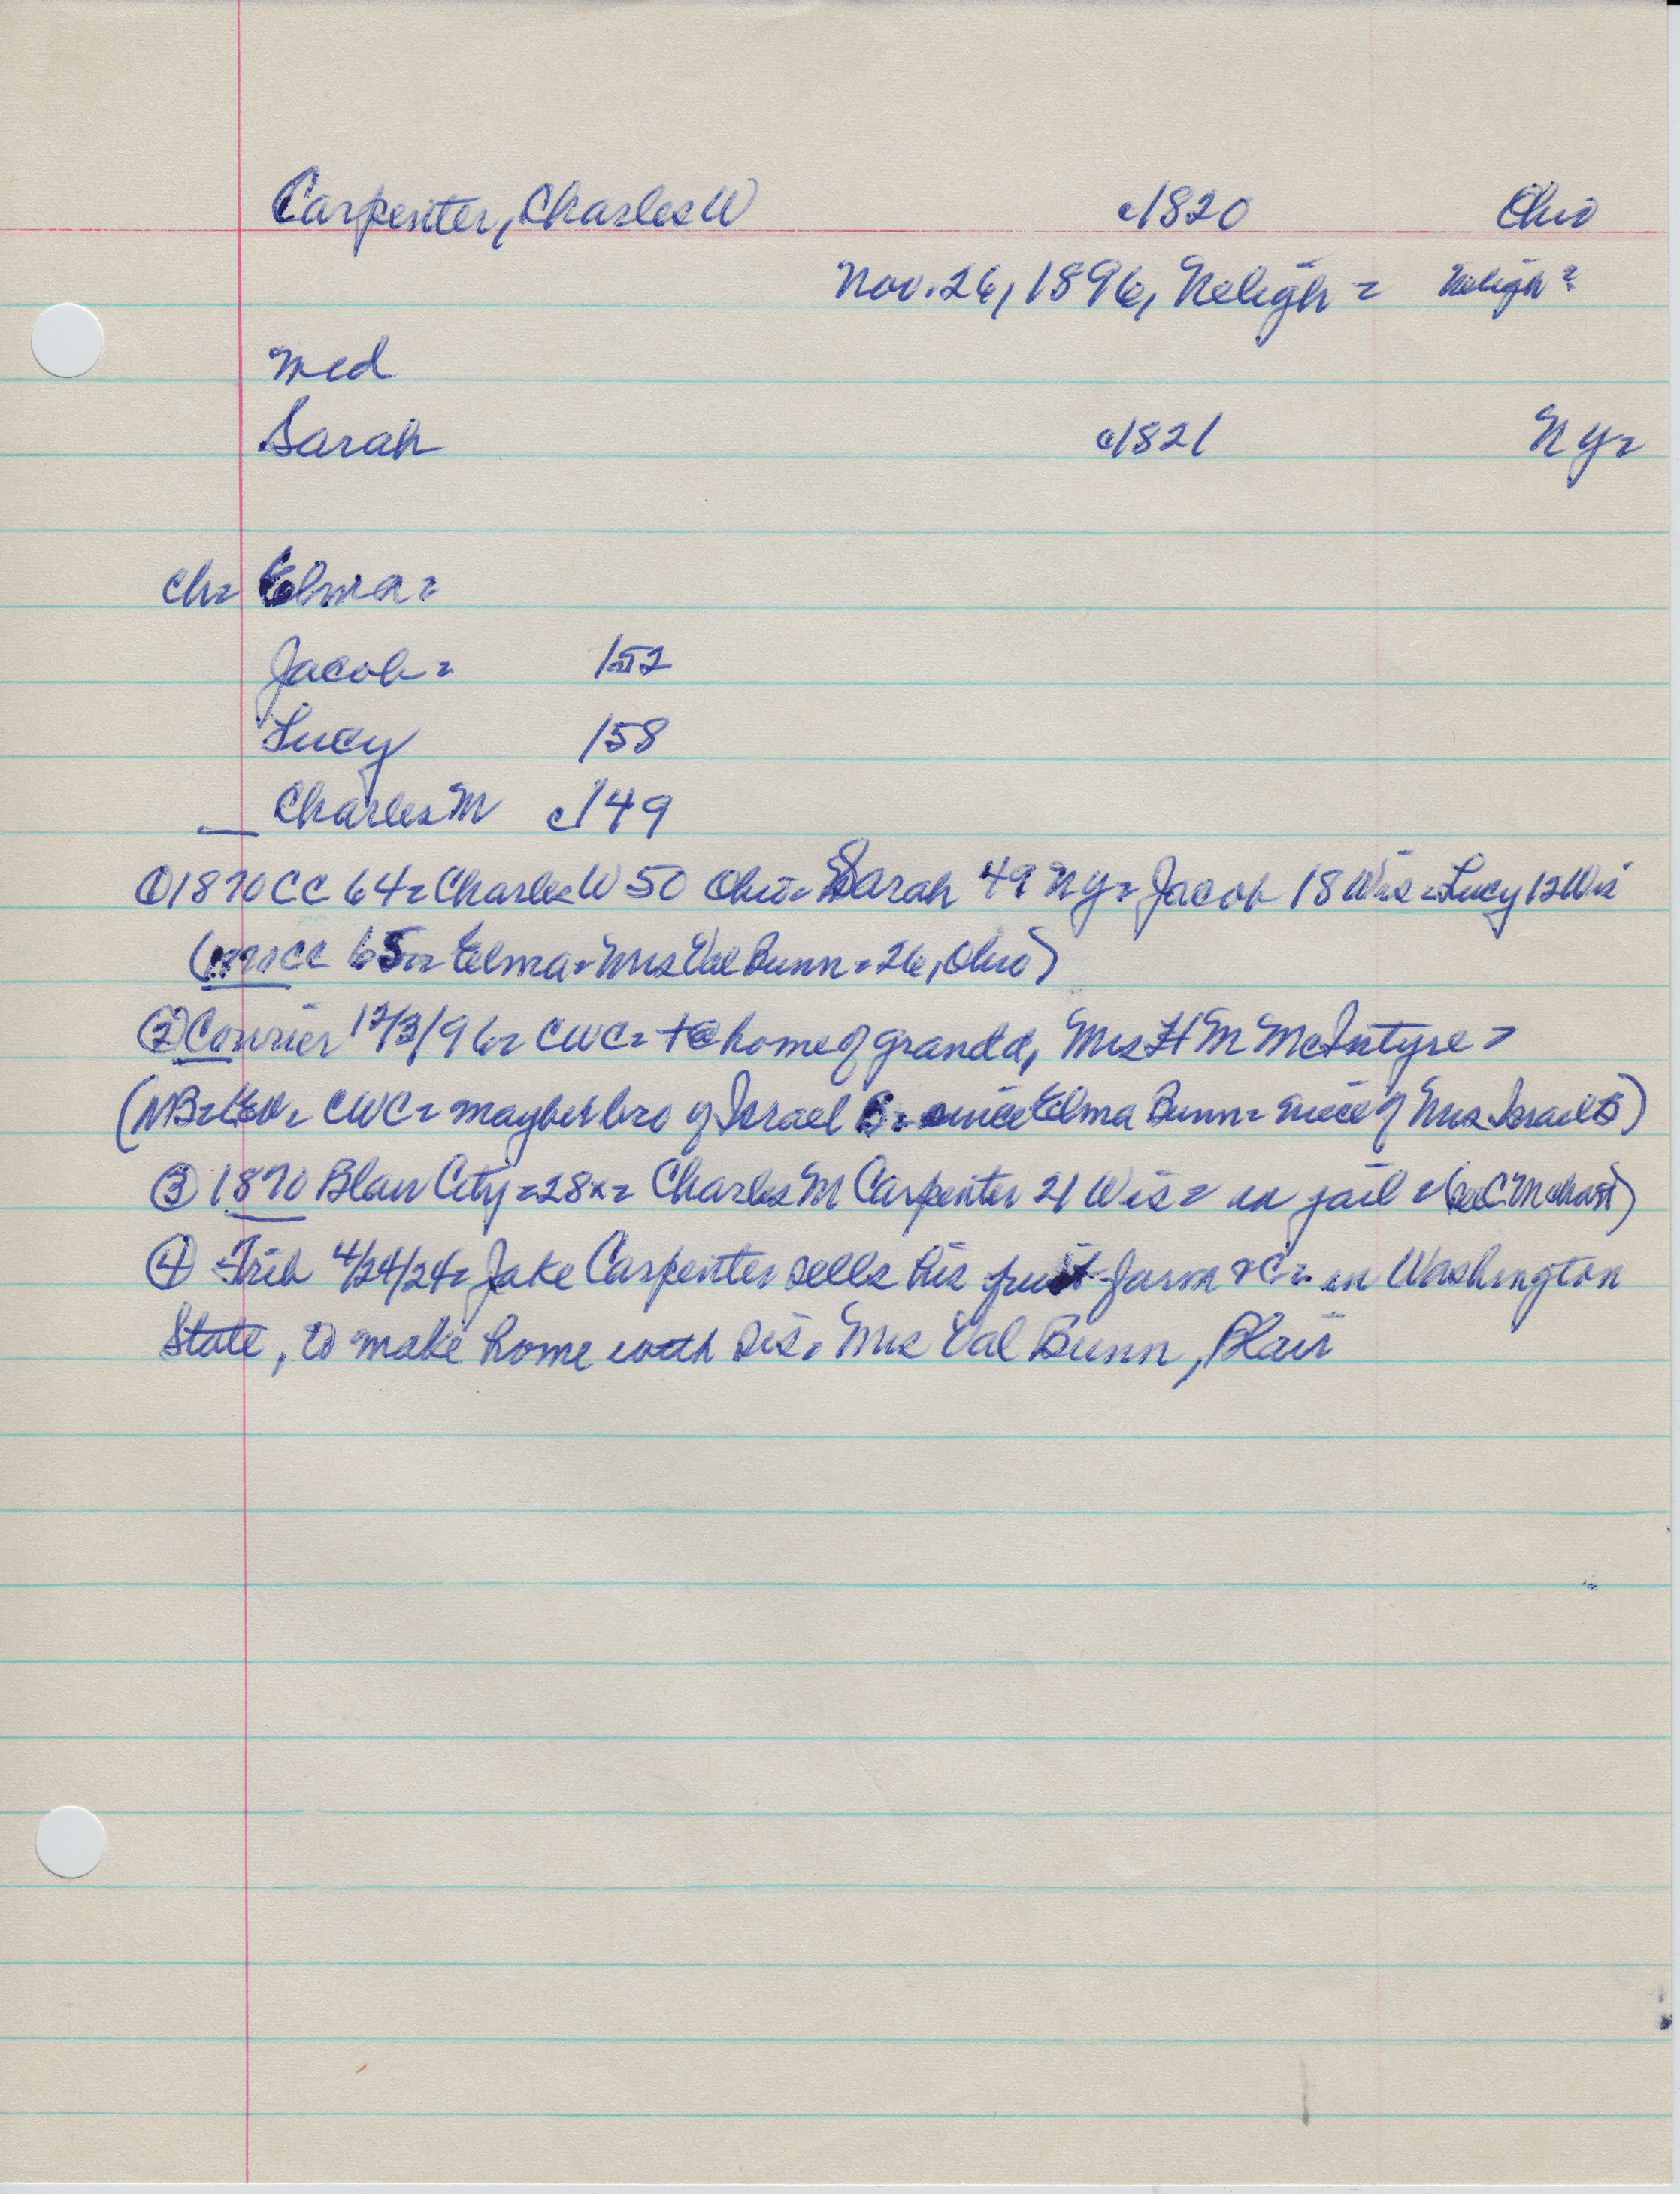 Carpenter, Charles W c1820 Ohio
Nov. 26, 1896, Neligh = Neligh?
Med
Sarah c1821 NY=
Ch= Elma=
Jacob= 152
Lucy 158
Charles M c149
① 1870 CC 64= Charles W 50 Ohio= Sarah 49 NY= Jacob 18 Wis= Lucy 12 Wis
(1870 CC 65= Elma= Mrs Val Bunn= 26, Ohio)
② Courier 12/3/96= CWC= +@ home of grandd, Mrs H M McIntyre=
(NB= CWC= maybe bro of Israel C= since Elma Bunn= niece of Mrs Israel C)
③ 1870 Blair City= 28x= Charles M Carpenter 21 Wis= in jail= (see C.M.)
④ Trib 4/24/24= Jake Carpenter sells his fruit farm &C= in Washington
State, to make home with sis. Mrs Val Bunn, Blair